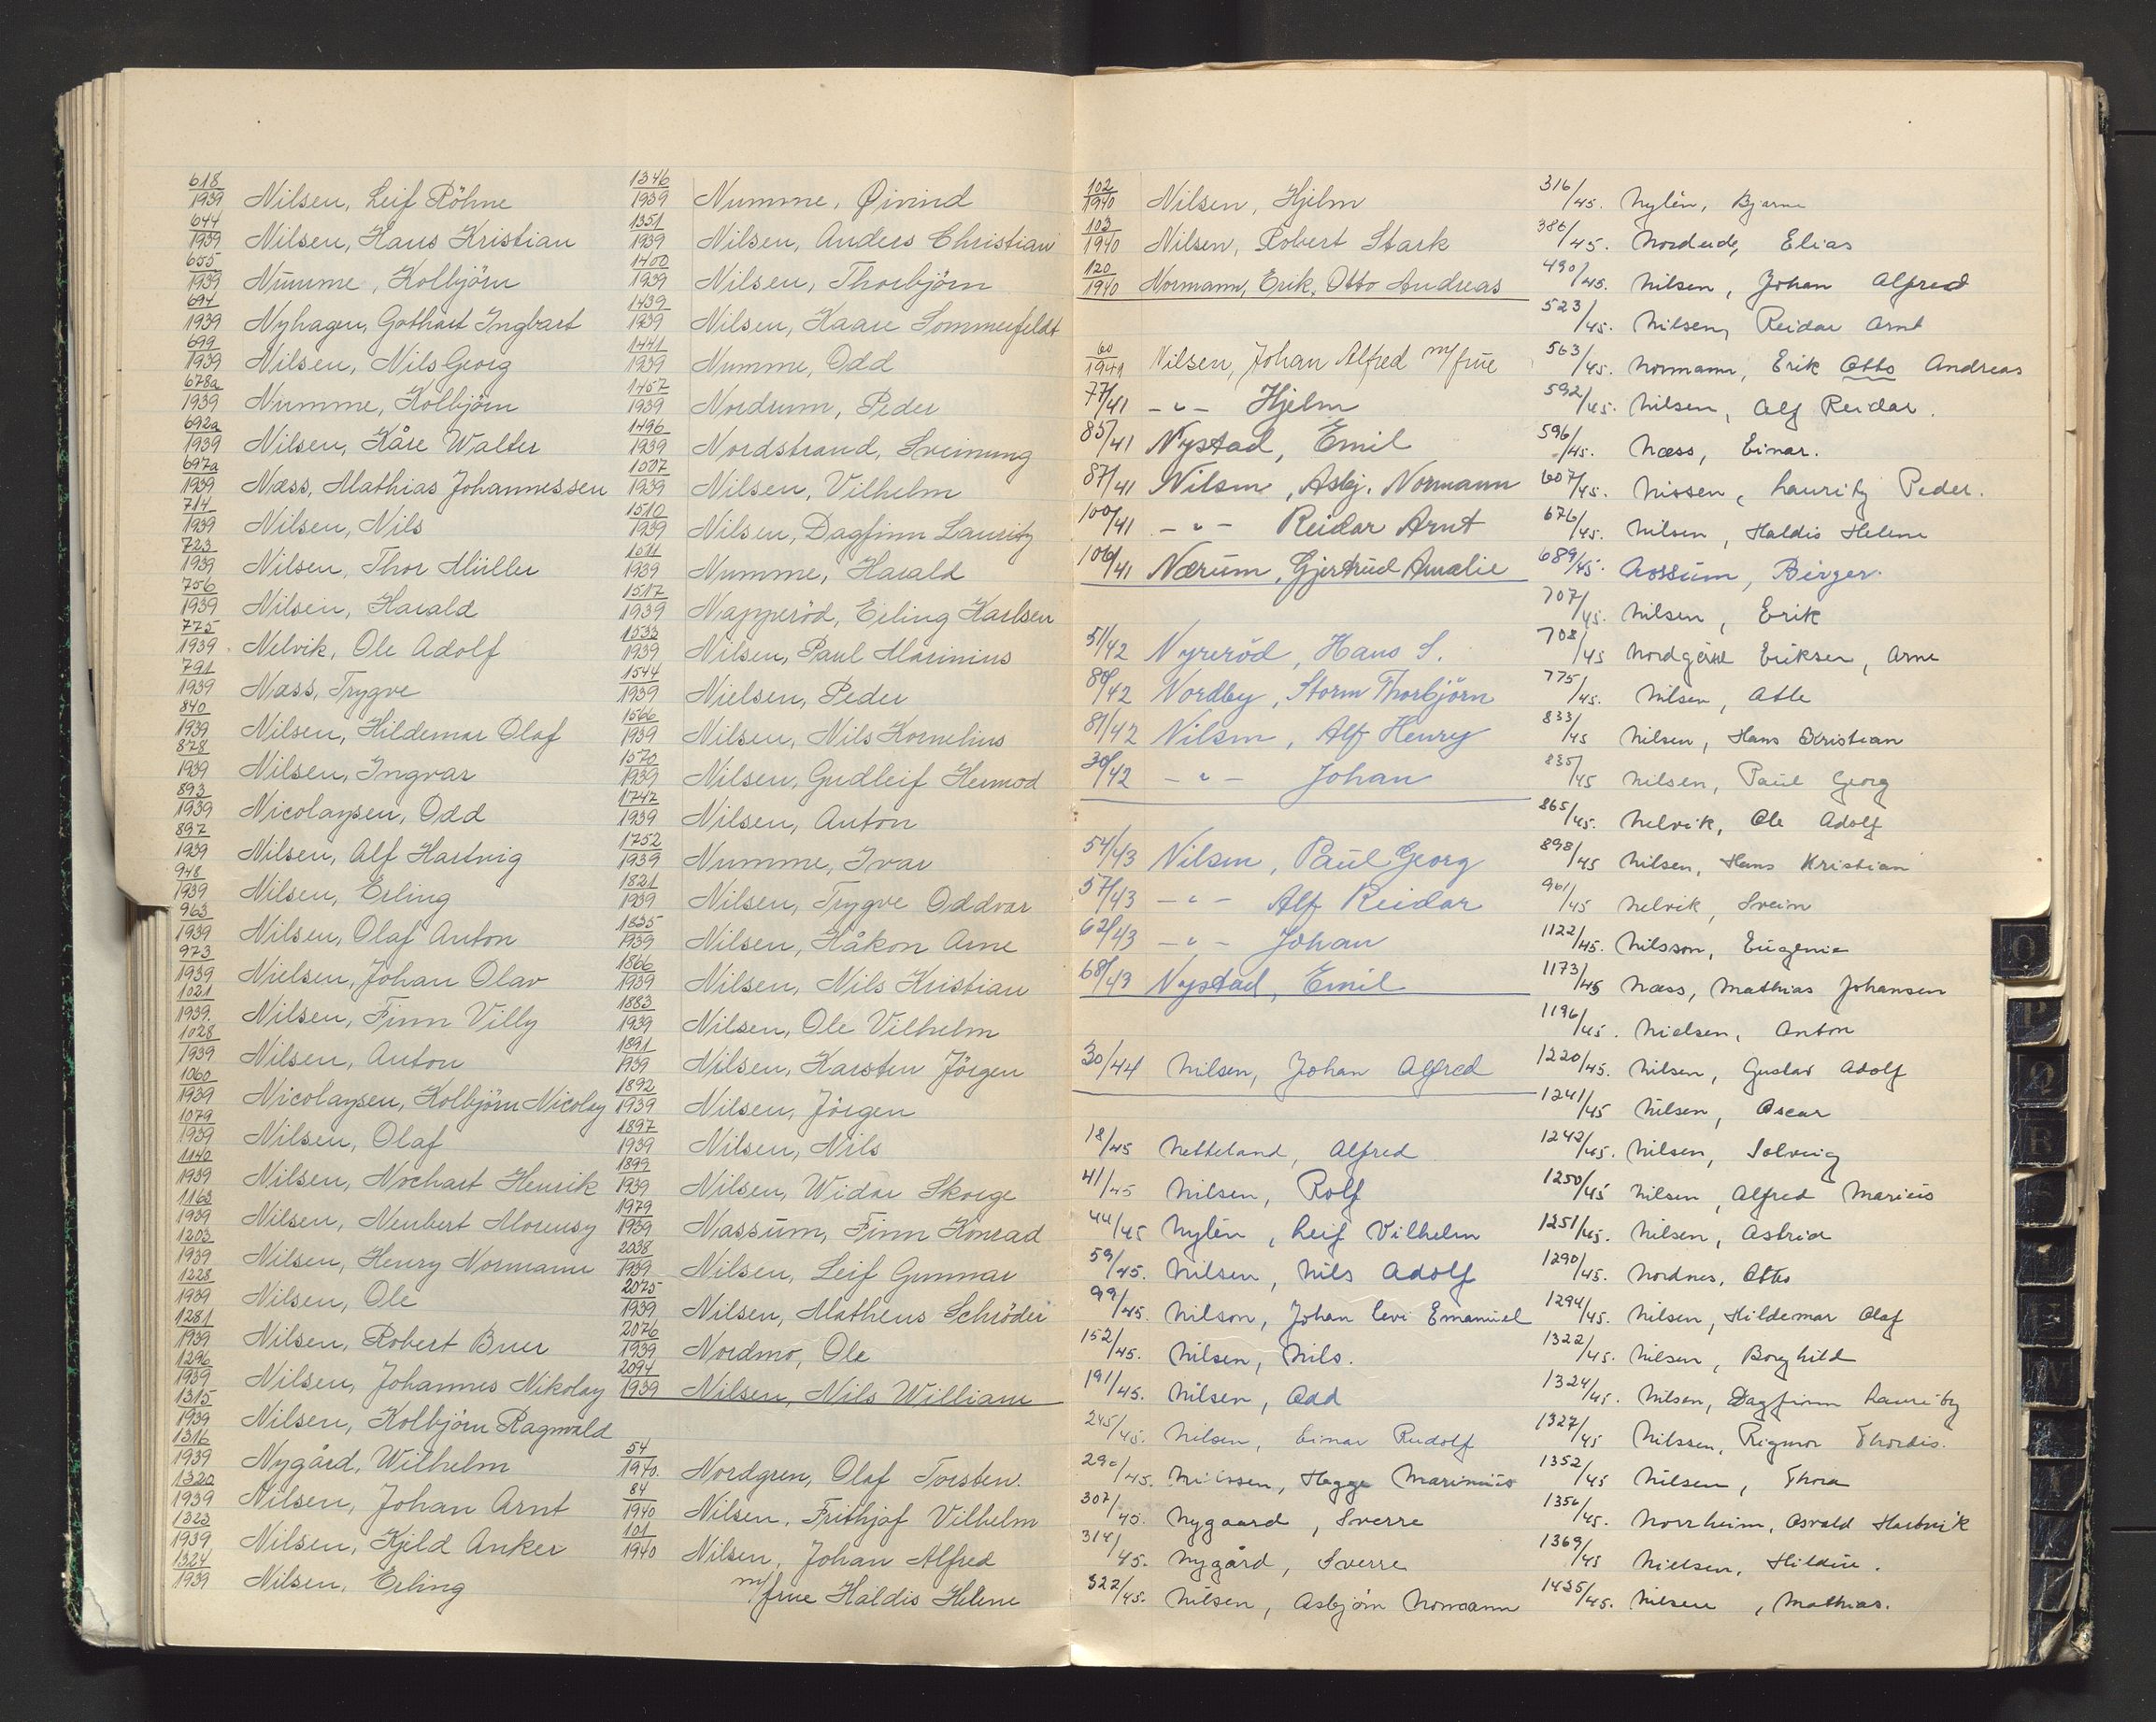 618/1939 Nilsen, Leif Röhne
644/1939 Nilsen, Hans Kristian
655/1939 Numme, Kolbjörn
694/1939 Nyhagen, Gothart Ingbart
699/1939 Nilsen, Nils Georg
678a/1939 Numme, Kolbjörn
692a/1939 Nilsen, Kåre Walter
697a/1939 Næss, Mathias Johannessen
714/1939 Nilsen, Nils
723/1939 Nilsen, Thor Müller
756/1939 Nilsen, Harald
775/1939 Nelvik, Ole Adolf
791/1939 Næss, Trygve
840/1939 Nilsen, Hildemar Olaf
878/1939 Nilsen, Ingvar
893/1939 Nicolaysen, Odd
897/1939 Nilsen, Alf Hartvig
948/1939 Nilsen, Erling
963/1939 Nilsen, Olaf Anton
973/1939 Nielsen, Johan Olav
1021/1939. Nilsen, Finn Villy
1028/1939 Nilsen, Anton
1060/1939 Nicolaysen, Kolbjörn Nicolay
1079/1939 Nilsen, Olaf
1140/1939 Nilsen, Nochart Henrik
1163/1939 Nilsen, Neubert Morensy
1203/1939 Nilsen, Henry Normann
1228/1939 Nilsen, Ole
1281/1939 Nilsen, Robert Buer
1296/1939 Nilsen, Johannes Nikolay
1315/1939 Nilsen, Kolbjörn Ragnvald
1316/1939 Nygård, Wilhelm
1320/1939 Nilsen, Johan Arnt
1323/1939 Nilsen, Kjeld Anker
1324/1939 Nilsen, Erling
1346/1939 Numme, Øivind
1351/1939 Nilsen, Anders Christian
1400/1939 Nilsen, Thorbjörn
1439/1939 Nilsen, Kaare Sommerfeldt
1441/1939 Numme, Odd
1457/1939 Nordrum, Peder
1496/1939 Nordstrand, Sveinung
1507/1939 Nilsen, Vilhelm
1510/1939 Nilsen, Dagfinn Lauritz
1511/1939 Numme, Harald
1517/1939 Napperöd, Erling Karlsen
1533/1939 Nilsen, Paul Marinius
1544/1939 Nielsen, Peder
1566/1939 Nilsen, Nils Kornelius
1570/1939 Nilsen, Gudleif Hermod
1747/1939 Nilsen, Anton
1752/1939 Numme, Ivar
1821/1939 Nilsen, Trygve Oddvar
1835/1939 Nilsen, Håkon Arne
1866/1939 Nilsen, Nils Kristian
1883/1939 Nilsen, Ole Vilhelm
1891/1939 Nilsen, Karsten Jörgen
1892/1939 Nilsen, Jörgen
1897/1939 Nilsen, Nils
1899/1939 Nilsen, Widar Skorge
1979/1939 Nassum, Finn Konrad
2038/1939 Nilsen, Leif Gunnar
2075/1939 Nilsen, Matheus Schröder
2076/1939 Nordmo, Ole
2094/1939 Nilsen, Nils William
54/1940. Nordgren, Olaf Torsten.
84/1940 Nilsen, Frithjof Vilhelm
101/1940 Nilsen, Johan Alfred
m/frue Haldis Helene
102/1940 Nilsen, Hjelm
103/1940 Nilsen, Robert Stark
120/1940 Normann, Erik, Otto Andreas
60/1941 Nilsen, Johan Alfred m/frue
77/41 -"- Hjelm
85/41 Nystad, Emil
87/41 Nilsen, Asbj. Normann
100/41 -"- Reidar Arnt
106/41 Nærum, Gjertrud Amalie
51/42 Nyreröd, Hans S.
80/42 Nordby, Storm Thorbjörn
81/42 Nilsen, Alf Henry
30/42 -"- Johan
54/43 Nilsen, Paul Georg
57/43 -"- Alf Reidar
62/43 -"- Johan
68/43 Nystad, Emil
30/44 Nilsen, Johan Alfred
18/45 Netteland, Alfred
41/45 Nilsen, Rolf
44/45 Nylén, Leif Vilhelm
59/45. Nilsen, Nils Adolf
99/45. Nilson, Johan Levi Emanuel
152/45. Nilsen, Nils.
191/45. Nilsen, Odd
245/45. Nilsen, Einar Rudolf
290/45. Nilssen, Hagge Marinius
307/45. Nygaard, Sverre
314/45. Nygård, Sverre
322/45. Nilsen, Asbjörn Normann
316/45. Nylén, Bjarne
386/45. Nordeide, Elias
490/45. Nilsen, Johan Alfred
523/45. Nilsen, Reidar Arnt
563/45. Normann, Erik Otto Andreas
592/45. Nilsen, Alf Reidar.
596/45. Næss, Einar.
607/45. Nissen, Lauritz Peder.
676/45. Nilsen, Haldis Helene
689/45. Aossum, Birger.
707/45. Nilsen, Erik
708/45 Eriksen, Arne
775/45. Nilsen, Atle
833/45 Nilsen, Hans Christian
835/45 Nilsen, Paul Georg
865/45. Nelvik, Ole Adolf
898/45 Nilsen, Hans Kristian
961/45 Nelvik, Svein
1122/45. Nilsson, Eugenie
1173/45 Næss, Mathias Johansen
1196/45. Nielsen, Anton
1220/45. Nilsen, Gustav Adolf
1241/45 Nilsen, Oscar
1242/45. Nilsen, Solveig
1250/45 Nilsen, Alfred Marius
1251/45. Nilsen, Astrid
1290/45. Nordnes, Otto
1294/45. Nilsen, Hildemar Olaf
1322/45. Nilsen, Borghild
1324/45. Nilsen, Dagfinn Lauritz
1327/45 Nilssen, Rigmor Thordis.
1352/45 Nilsen, Thora
1356/45. Norrheim, Osvald Hartvik
1369/45 Nielsen, Hildur.
1435/45. Nilsen, Mathias.
O
P
Q
R